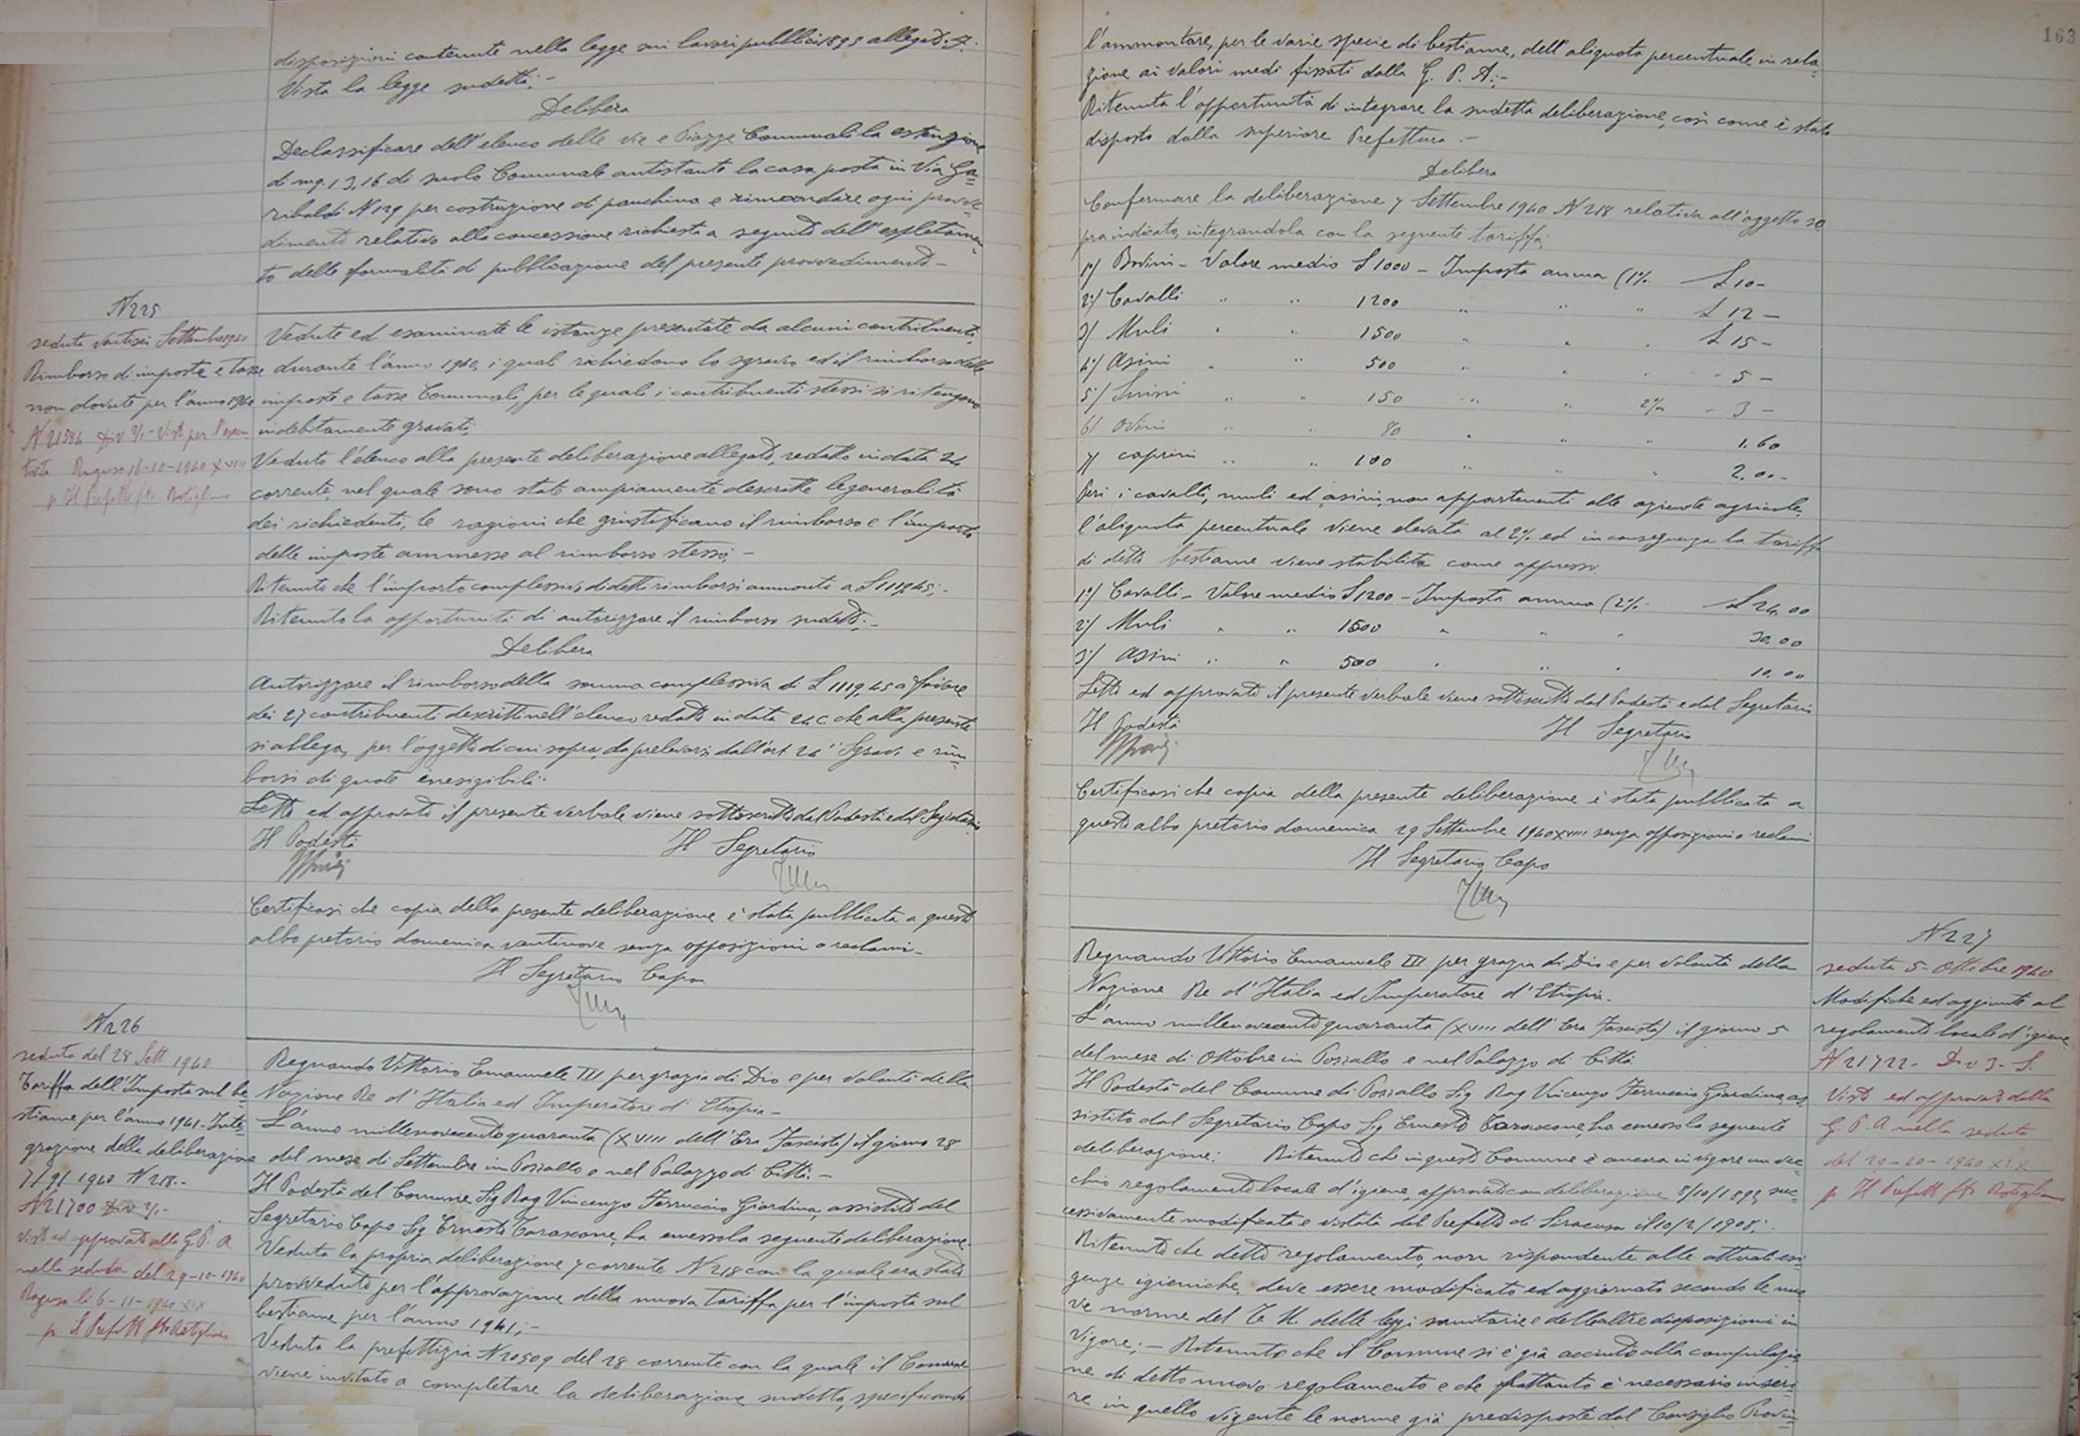 disposizioni contenute nella legge sui lavori pubblici 1895 allegato F.
Vista la legge sudetta;-
Delibera
Declassificare dell'elenco delle vie e Piazze Comunali la estenzione
di mq. 13,16 di suolo Comunale antistante la casa posta in Via Ga=
ribaldi N 129 per costruzione di panchina e rimandare ogni provve=
dimento relativo alla concessione richiesta a seguito dell'espletamen=
to delle formalità di pubblicazione del presente provvedimento -
N 225
seduta ventisei Settembre 1940
Rimborso di imposte e tasse
non dovute per l'anno 1940
N 21584 Div 2/1 - Visto per l'esecu
tività Ragusa 16-10-1940 XVIII
p. Il Prefetto fto
Vedute ed esaminate le istanze presentate da alcuni contribuenti,
durante l'anno 1940, i quali richiedono lo sgravio ed il rimborso delle
imposte e tasse Comunali, per le quali i contribuenti stessi si ritengono
indebitamente gravati;
Veduto l'elenco alla presente deliberazione allegato, redatto in data 24
corrente, nel quale sono state ampiamente descritte le generalità
dei richiedenti, le ragioni che giustificano il rimborso e l'importo
delle imposte ammesse al rimborso stesso; -
Ritenuto che l'importo complessivo di detti rimborsi ammonta a £ 1119,45;-
Ritenuto la opportunità di autorizzare il rimborso sudetto;-
Delibera
Autorizzare il rimborso della somma complessiva di £ 1119,45 a favore
dei 27 contribuenti descritti nell'elenco redatto in data 24 c che alla presente
si allega, per l'oggetto di cui sopra, da prelevarsi dall'art 24 "Sgravi e rim=
borsi di quote inesigibili"
Letto ed approvato il presente verbale viene sottoscritto dal Podestà e dal Segretario
Il Podestà Il Segretario
Certificasi che copia della presente deliberazione è stata pubblicata a questo
albo pretorio domenica ventinove senza opposizioni o reclami -
Il Segretario Capo
N 226
seduta del 28 Sett 1940
Tariffa dell'Imposta sul be=
stiame per l'anno 1941 - Inte=
grazione della deliberazione
7/9/1940 N 218.-
N 21700 Div 2/1-
visto ed approvato alla G.P.A
nella seduta del 29-10-1940
Ragusa li 6-11-1940 XIX
p. il Prefetto fto
Regnando Vittorio Emanuele III per grazia di Dio e per volontà della
Nazione Re d'Italia ed Imperatore d'Etiopia -
L'anno millenovecentoquaranta (XVIII dell'Era Fascista) il giorno 28
del mese di Settembre in Pozzallo e nel Palazzo di Città. -
Il Podestà del Comune Sig Rag Vincenzo Ferruccio Giardina, assistito dal
Segretario Capo Sig Ernesto Tarascone, ha emesso la seguente deliberazione.
Veduta la propria deliberazione 7 corrente N 218 con la quale era stato
provveduto per l'approvazione della nuova tariffa per l'imposta sul
bestiame per l'anno 1941;-
Veduta la prefettizia N 20509 del 28 corrente con la quale il Comune
viene invitato a completare la deliberazione sudetta, specificando
163
l'ammontare, per le varie specie di bestiame, dell'aliquota percentuale in rela=
zione ai valori medi fissati dalla G. P. A;-
Ritenuta l'opportunità di integrare la sudetta deliberazione, così come è stato
disposto dalla superiore Prefettura -
Delibera
Confermare la deliberazione 7 Settembre 1940 N 218 relativa all'oggetto so
pra indicato, integrandola con la seguente tariffa:
1°/ Bovini - Valore medio £ 1000 - Imposta annua (1% £ 10-
2°/ Cavalli " " 1200 " " " £ 12 -
3/ Muli " " 1500 " " " £ 15 -
4°/ Asini " " 500 " " " 5 -
5°/ Suini " " 150 " " 2% - 3 -
6/ Ovini " " 80 " " " 1.60
7/ caprini " " 100 " " " 2.00-
Peri i cavalli, muli ed asini, non appartenenti alle aziende agricole,
l'aliquota percentuale viene elevata al 2% ed in conseguenza la tariffa
di detto bestiame viene stabilita come appresso
1°/ Cavalli - Valore medio £ 1200 - Imposta annua (2% £ 24,00
2°/ Muli " " 1500 " " " 30,00
3°/ Asini " " 500 " " " 10,00
Letto ed approvato il presente verbale viene sottoscritto dal Podestà e dal Segretario
Il Podestà Il Segretario
Certificasi che copia della presente deliberazione è stata pubblicata a
questo albo pretorio domenica 29 Settembre 1940 XVIII senza opposizioni o reclami
Il Segretario Capo
N 227
seduta 5 - Ottobre 1940
Modifiche ed aggiunte al
regolamento locale d'igiene
N 21722 - Div 3 - S.
Visto ed approvato dalla
G. P. A nella seduta
del 29-10-1940 XIX
p. Il Prefetto fto
Regnando Vittorio Emanuele III per grazia di Dio e per volontà della
Nazione Re d'Italia ed Imperatore d'Etiopia.
L'anno millenovecentoquaranta (XVIII dell'Era Fascista) il giorno 5
del mese di Ottobre in Pozzallo e nel Palazzo di Città
Il Podestà del Comune di Pozzallo Sig Rag Vincenzo Ferruccio Giardina as
sistito dal Segretario Capo Sig Ernesto Tarascone, ha emesso la seguente
deliberazione: Ritenuto che in questo Comune è ancora in vigore un vec=
chio regolamento locale d'igiene, approvato con deliberazione 8/10/1892, suc=
cessivamente modificato e vistato dal Prefetto di Siracusa il 10/2/1908;-
Ritenuto che detto regolamento, non rispondente alle attuali esi
genze igieniche, deve essere modificato ed aggiornato secondo le nuo
ve norme del T. U. delle leggi sanitarie e delle altre disposizioni in
vigore; - Ritenuto che il Comune si è già accinto alla compilazio
ne di detto nuovo regolamento e che frattanto è necessario inseri
re in quello vigente le norme già predisposte dal Consiglio Provin=